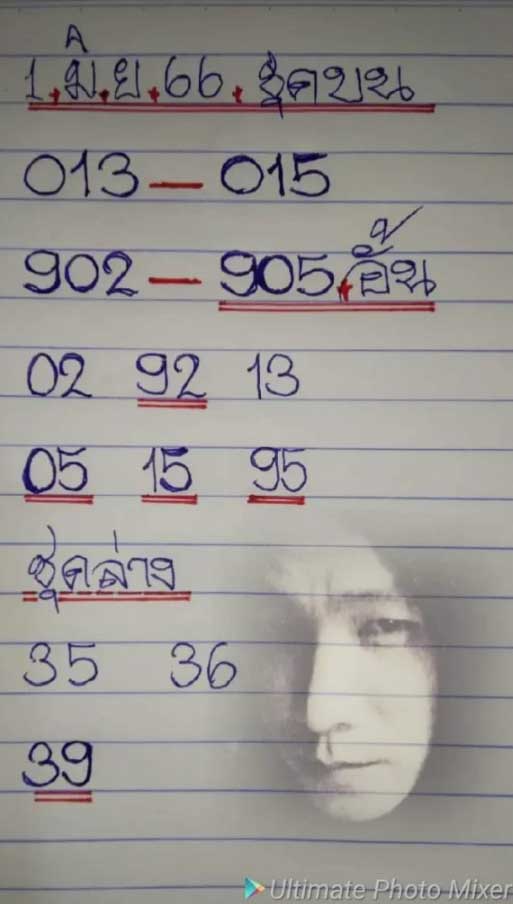 A
1.มิ.ย.66.ชุดบน
013 — 015
902 — 905.
02 92 13
05 15 95
ชุดล่าง
35 36
39
Ultimate Photo Mixer